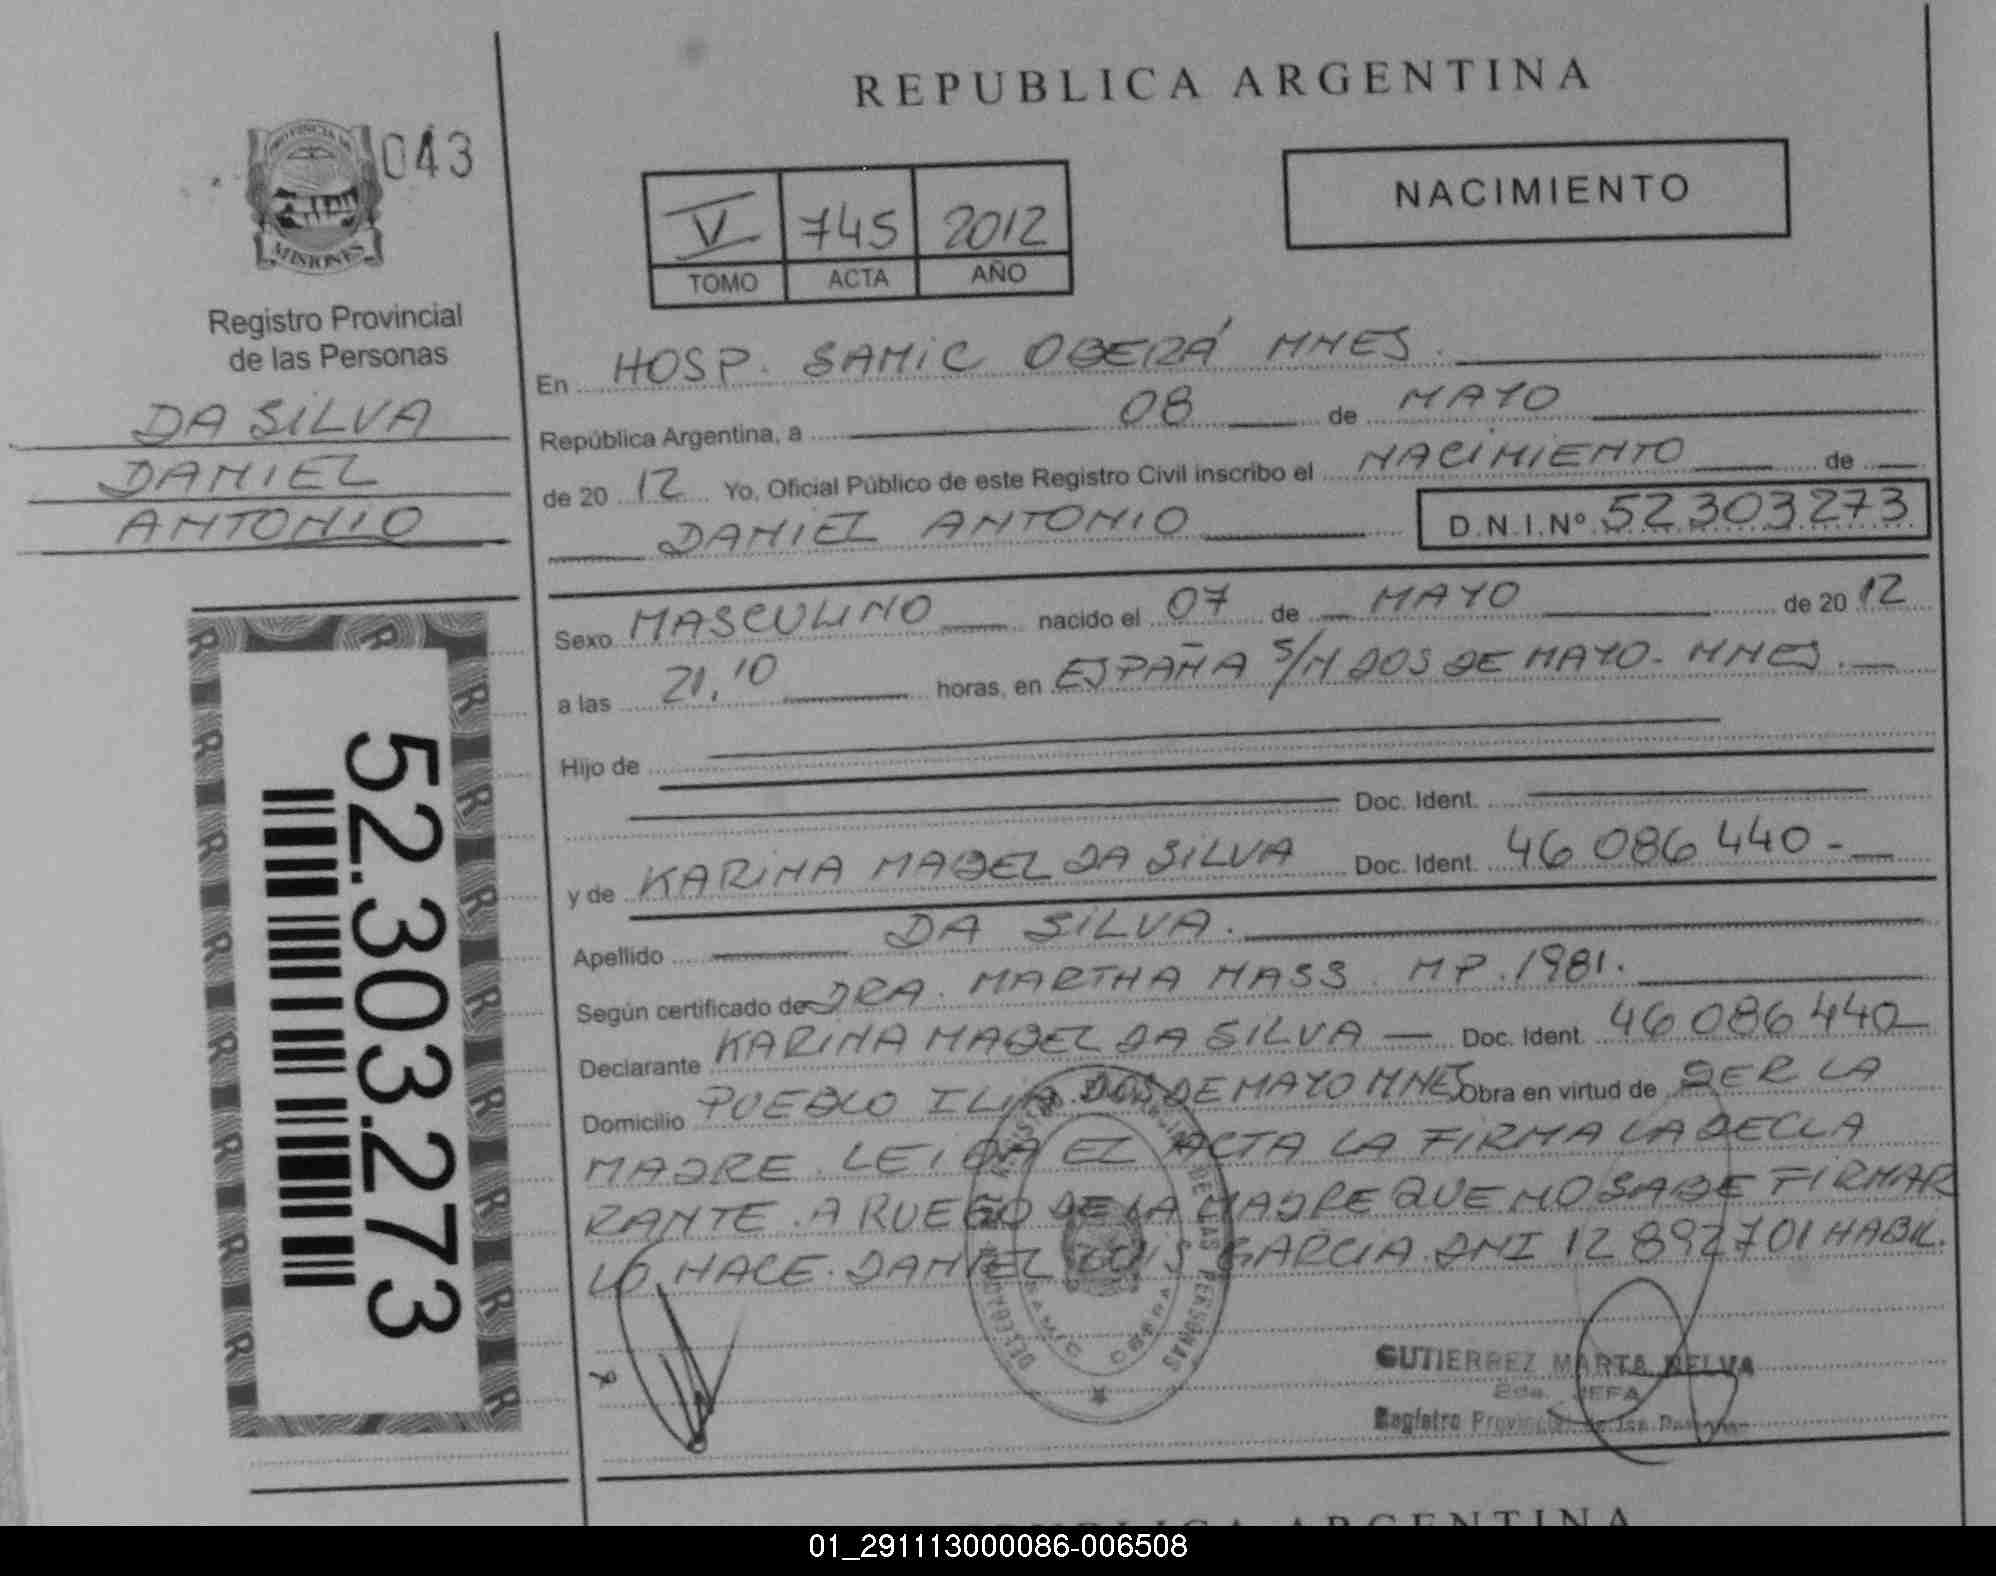 REPUBLICA ARGENTINA
043
PROVINCIA DE
MISIONES
NACIMIENTO
V 745 2012
TOMO ACTA AÑO
Registro Provincial
de las Personas
DA SILVA
DANIEL
ANTONIO
52.303.273
En HOSP. SAMIC OBERÁ MNES.
República Argentina, a 08 de MAYO
de 20 12 Yo, Oficial Público de este Registro Civil inscribo el NACIMIENTO de
DANIEL ANTONIO D.N.I.Nº 52303273
Sexo MASCULINO nacido el 07 de MAYO de 20 12
a las 21.10 horas, en ESPAÑA S/N DOS DE MAYO - MNES.
Hijo de
Doc. Ident.
y de KARINA MABEL DA SILVA Doc. Ident. 46086440-
Apellido DA SILVA.
Según certificado de DRA. MARTHA MASS MP.1981.
Declarante KARINA MABEL DA SILVA — Doc. Ident. 46086440
Domicilio PUEBLO ILIA DOS DE MAYO MNES Obra en virtud de SER LA
MADRE. LEIDA EL ACTA LA FIRMA LA DECLA
RANTE. A RUEGO DE LA MADRE QUE NO SABE FIRMAR
LO HACE. DANIEL LUIS GARCIA DNI 12892701 HABIL.
DE LAS PERSONAS
SAMIC OBERA
GUTIERREZ MARTA DELVA
JEFA
Registro Provincial de las Personas
REPUBLICA ARGENTINA
01_291113000086-006508